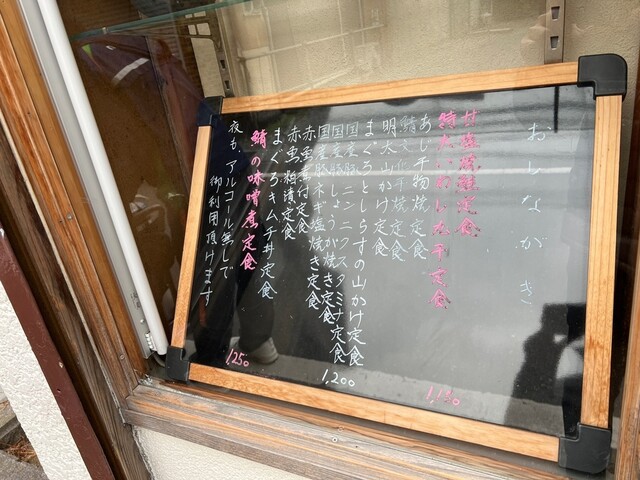 おしながき
甘塩焼鮭定食
特大いわし丸干定食
あじ干物焼定食
鯖文化干焼定食
明太山かけ定食
まぐろとしらすの山かけ定食
国産豚ニンニクスタミナ定食
国産豚しょうが焼き定食
国産豚ネギ塩焼き定食
赤魚煮付定食
赤魚粕漬定食
まぐろキムチ丼定食
鯖の味噌煮定食
夜も アルコール無しで
御利用頂けます
1,150
1,200
1,250